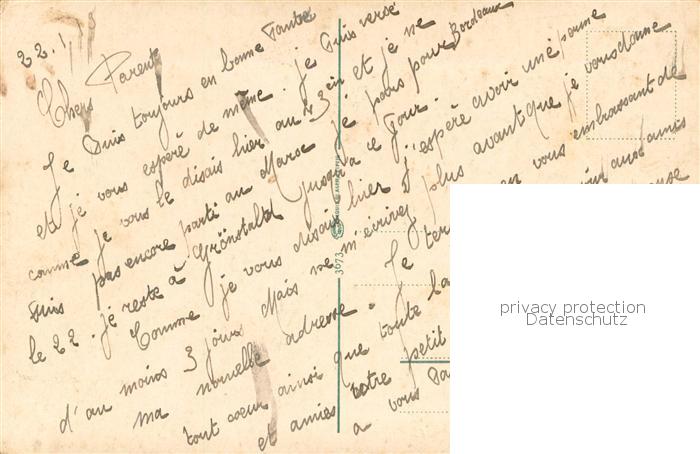 22.1
Chers Parents
Je suis toujours en bonne Santé
et je vous espère de même. je suis versé
comme je vous le disais hier au 43 ein et je ne
suis pas encore parti au Maroc je pars pour Bordeaux
le 22. je reste à Grönstaldt jusqu'à ce jour.
Comme je vous disais hier j'espère avoir une perme
d'au moins 3 jours Mais ne m'écrivez plus avant que je vous donne
ma nouvelle adresse. Je ter en vous embrassant de
tout coeur ainsi que toute la aux amis
et amies votre petit
a vous
3073
privacy protection
Datenschutz